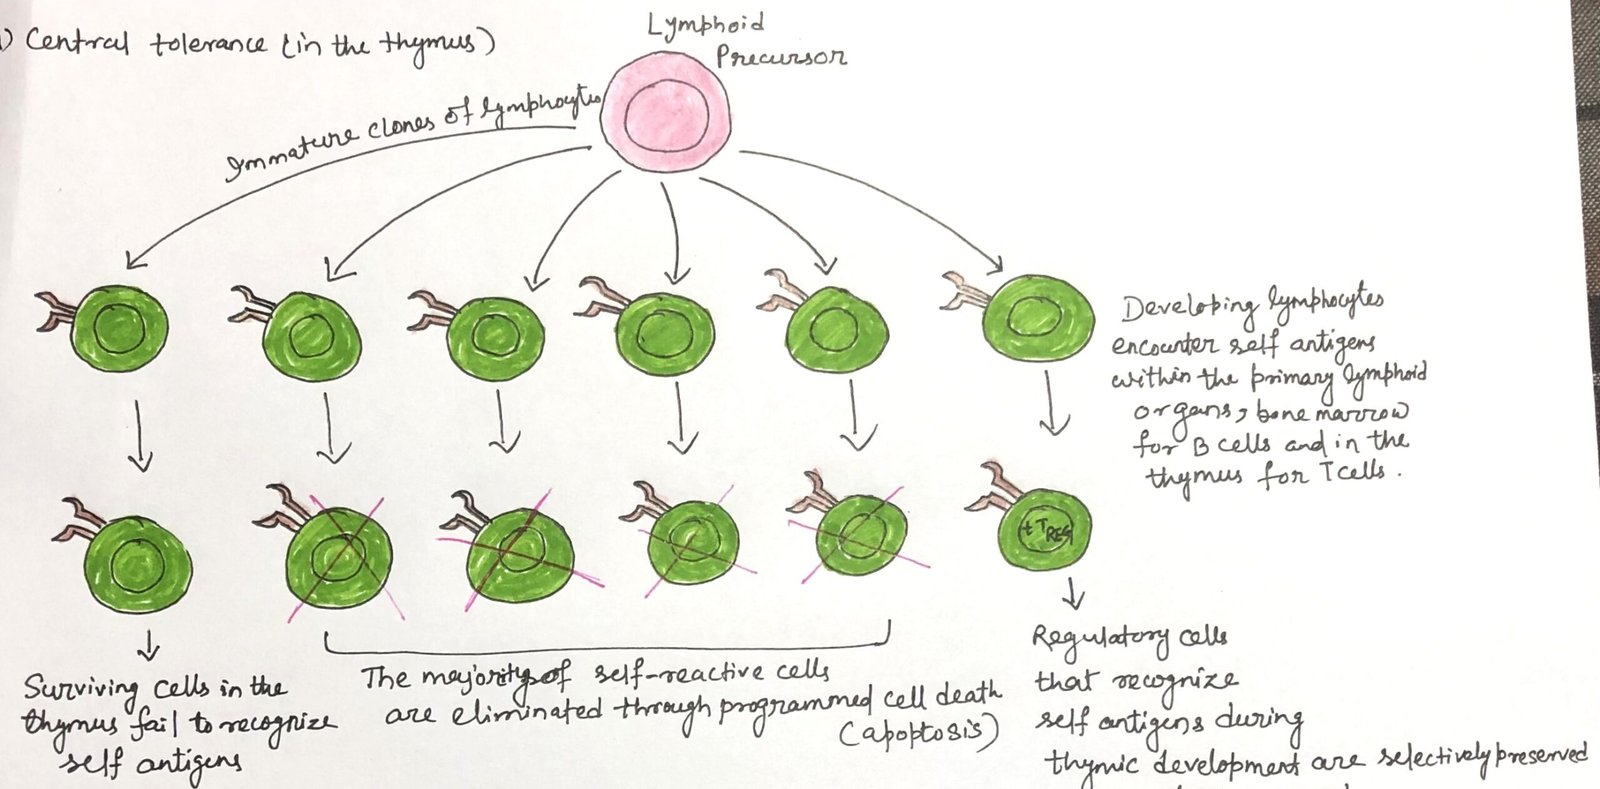 1) Central tolerance (in the thymus)
Lymphoid
Precursor
Immature clones of lymphocytes
Developing lymphocytes
encounter self antigens
within the primary lymphoid
organs, bone marrow
for B cells and in the
thymus for T cells.
tTREG
Surviving cells in the
thymus fail to recognize
self antigens
The majority of self-reactive cells
are eliminated through programmed cell death
(apoptosis)
Regulatory cells
that recognize
self antigens during
thymic development are selectively preserved